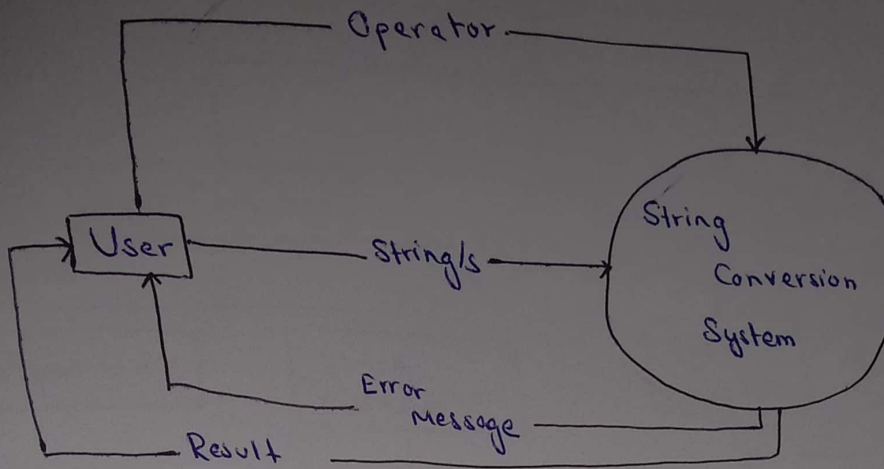 Operator
User
String/s
String
Conversion
System
Error
Message
Result